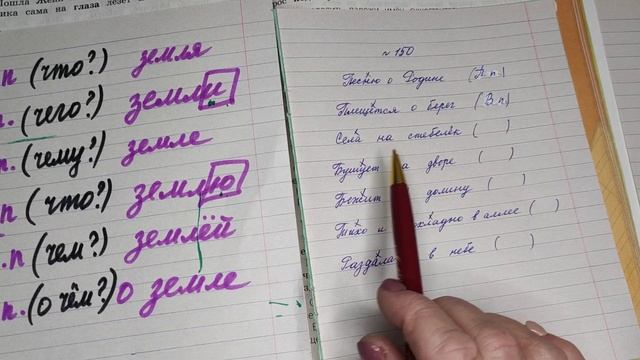 ика сама на глаза лезет
п (что?) земля
п. (чего?) земли
п. (чему?) земле
п (что?) землю
.п (чем?) землёй
п. (о чём?) о земле
№ 150
Песню о Родине (П.п.)
Плещется о берег (В.п)
Села на стебелёк ( )
Бушует на дворе ( )
Бежит долину ( )
Тихо и прохладно в аллее ( )
в небе ( )